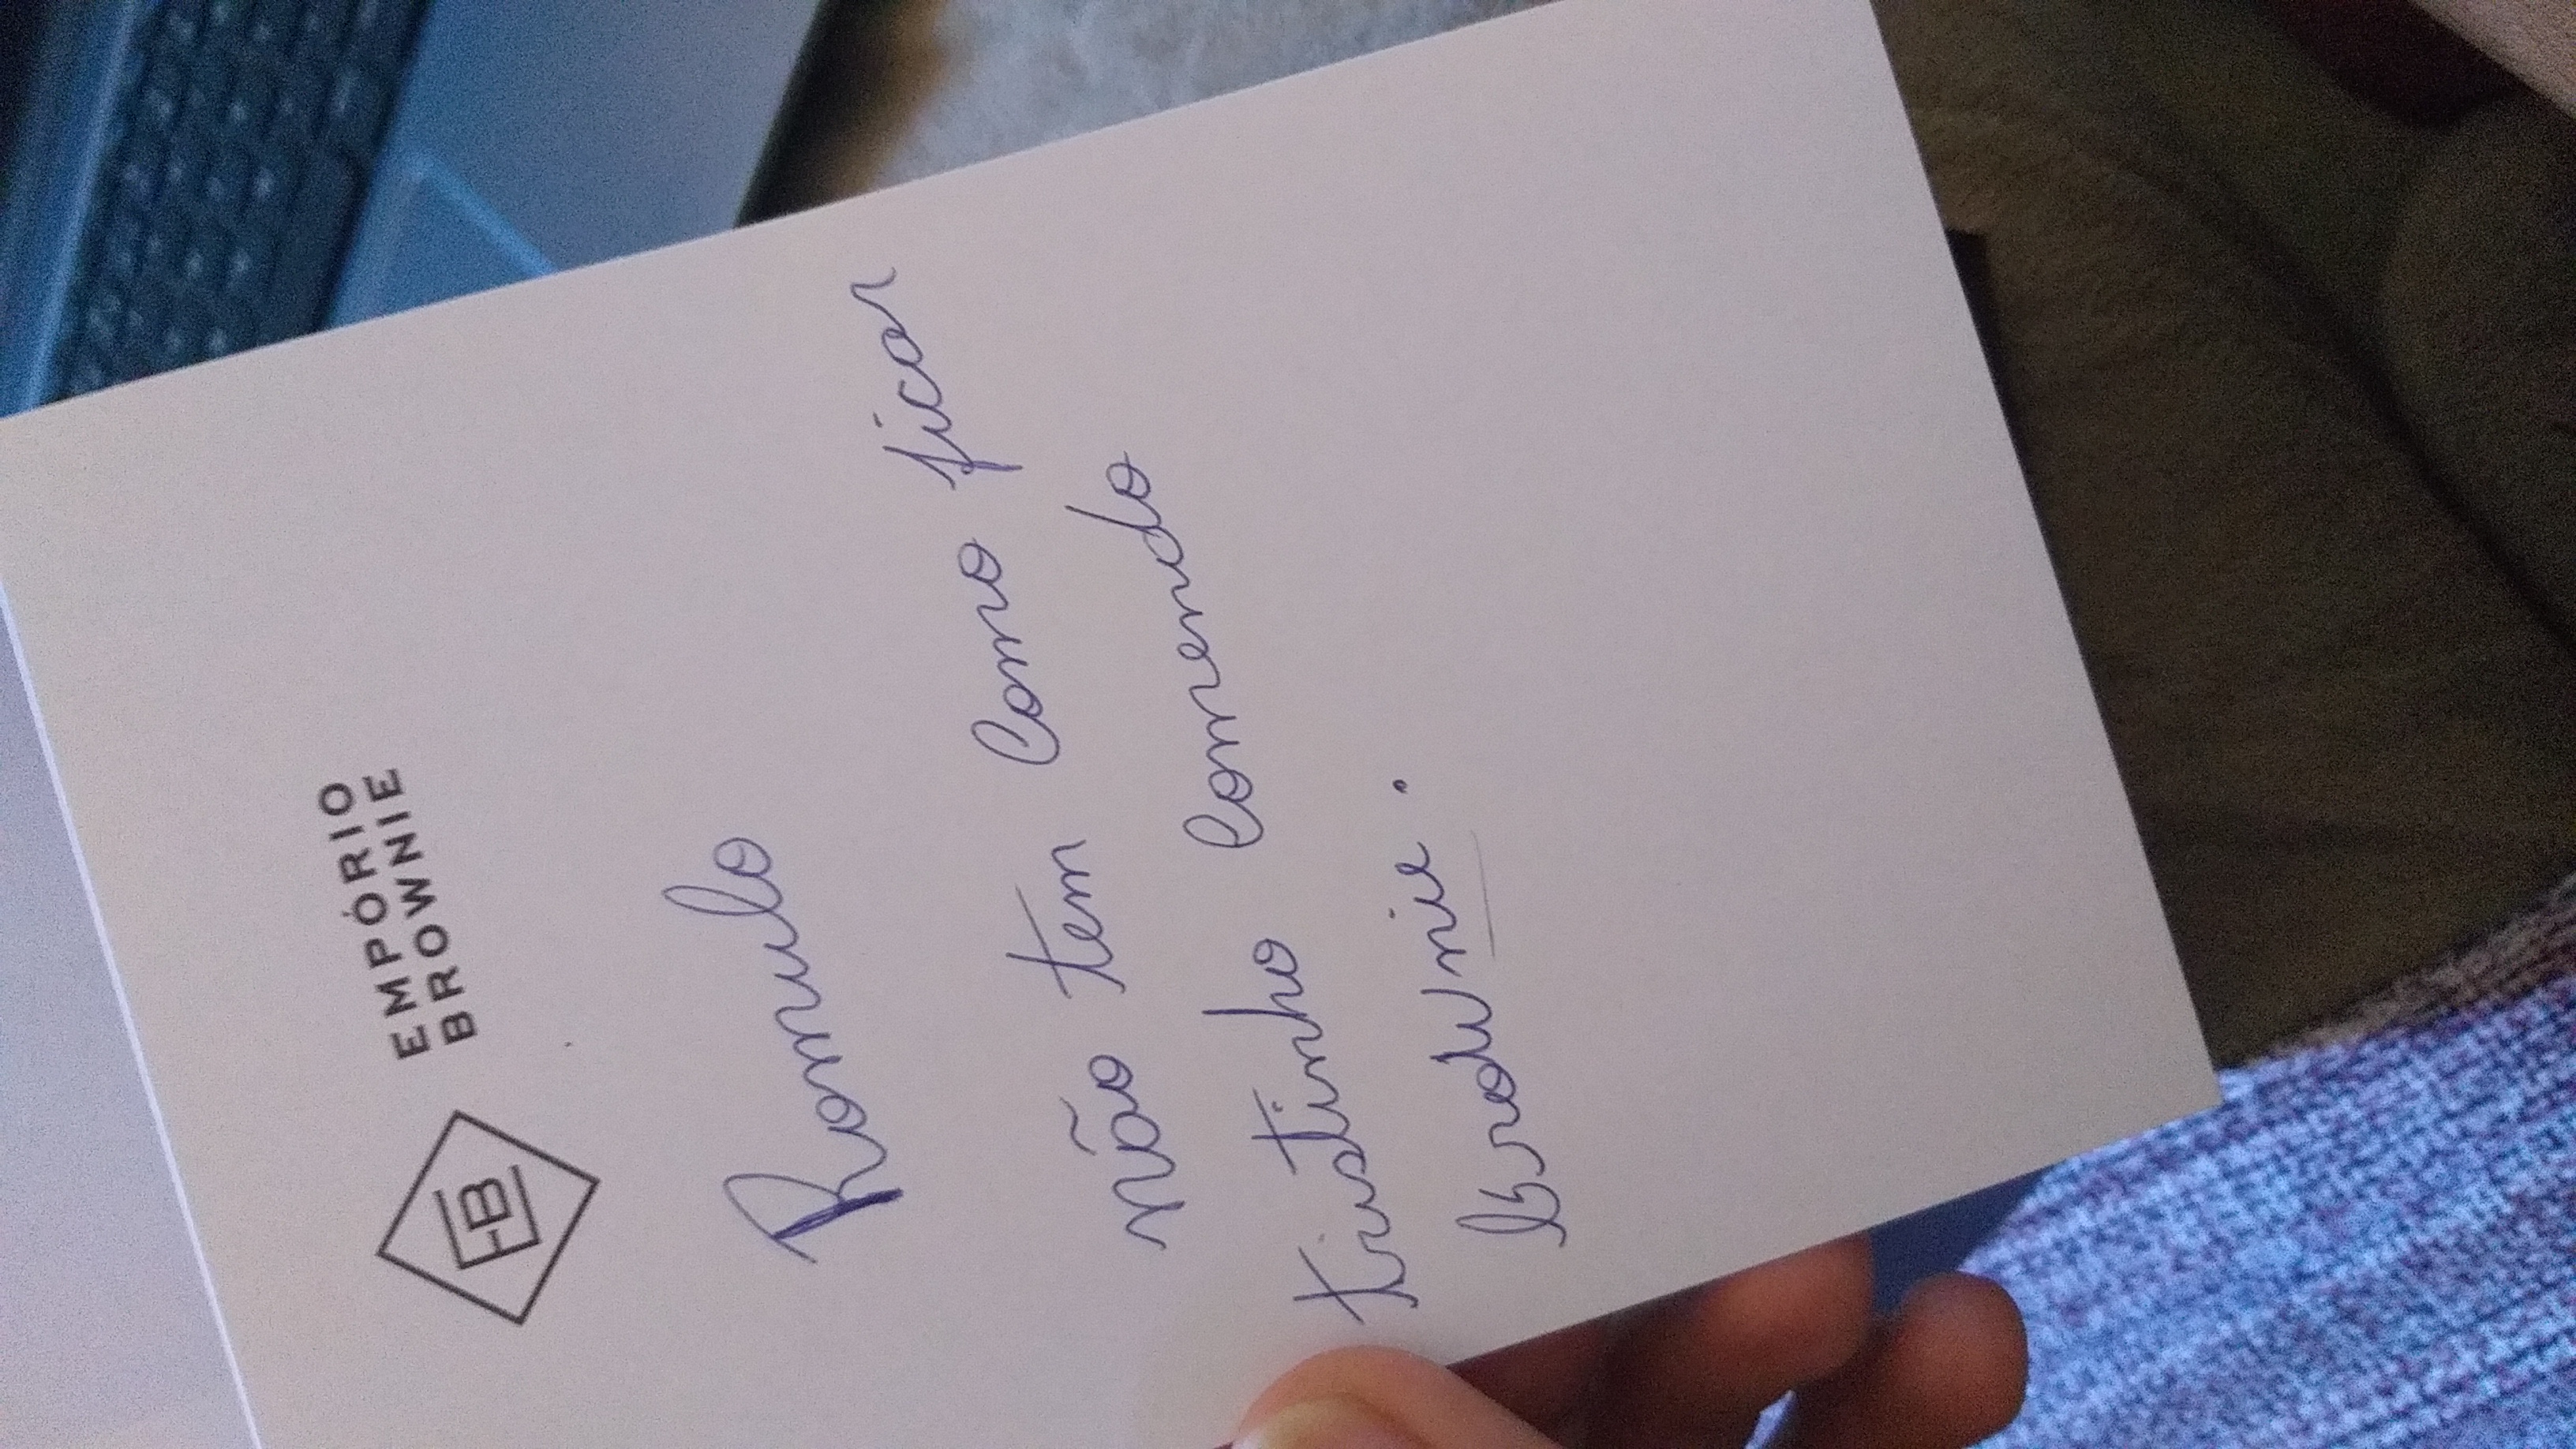 EB
EMPÓRIO
BROWNIE
Romulo
não tem como ficar
tristinho comendo
brownie.